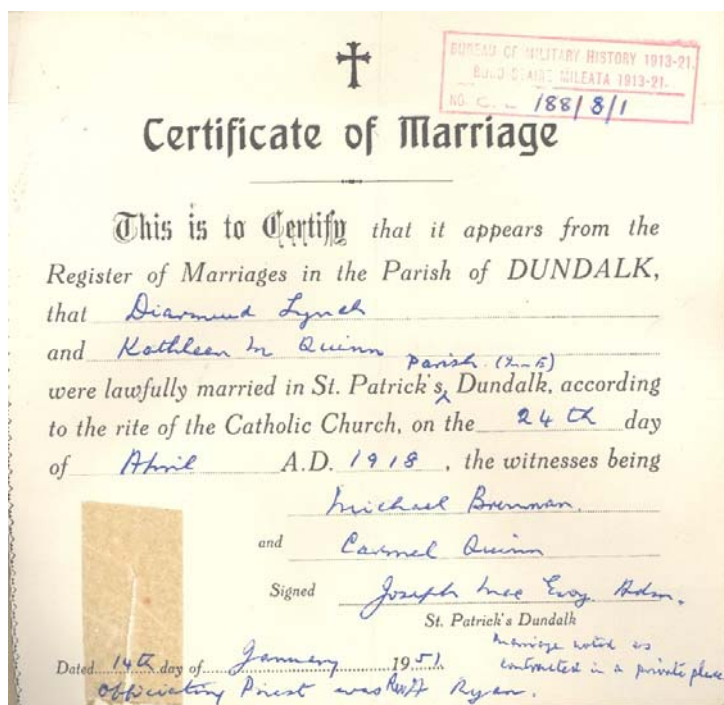 BUREAU OF MILITARY HISTORY 1913-21
BURO STAIRE MILEATA 1913-21
NO. C.D. 188/8/1
Certificate of Marriage
This is to Certify that it appears from the
Register of Marriages in the Parish of DUNDALK,
that Diarmuid Lynch
and Kathleen M Quinn
Parish
were lawfully married in St. Patrick's, Dundalk, according
to the rite of the Catholic Church, on the 24th day
of April A.D. 1918, the witnesses being
Michael Brennan.
and Carmel Quinn
Signed Joseph Mac Evoy. Adm.
St. Patrick's Dundalk
Marriage noted as
contracted in a private place
Dated 14th day of January 1951.
Officiating Priest was Rev. Ryan.